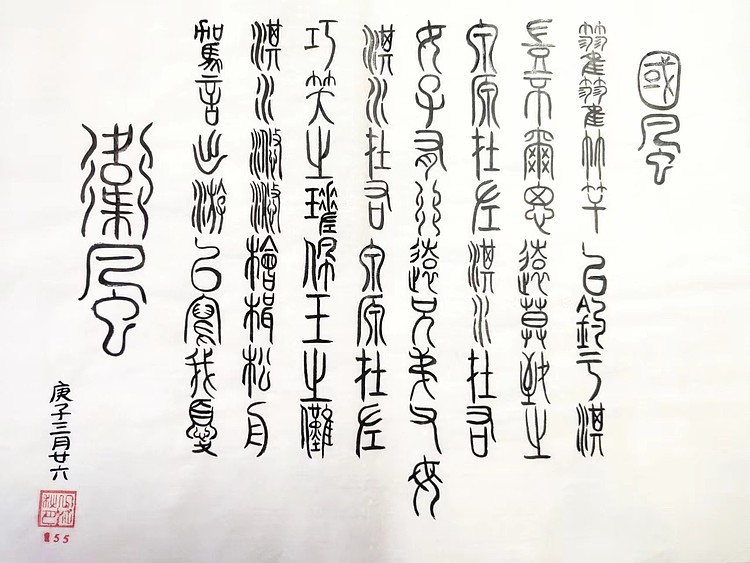 國風
籊籊竹竿以釣于淇
豈不爾思遠莫致之
泉源在左淇水在右
女子有行遠兄弟父母
淇水在右泉源在左
巧笑之佩玉之儺
淇水滺滺檜楫松舟
駕言出游以寫我憂
衛風
庚子三月廿六
55